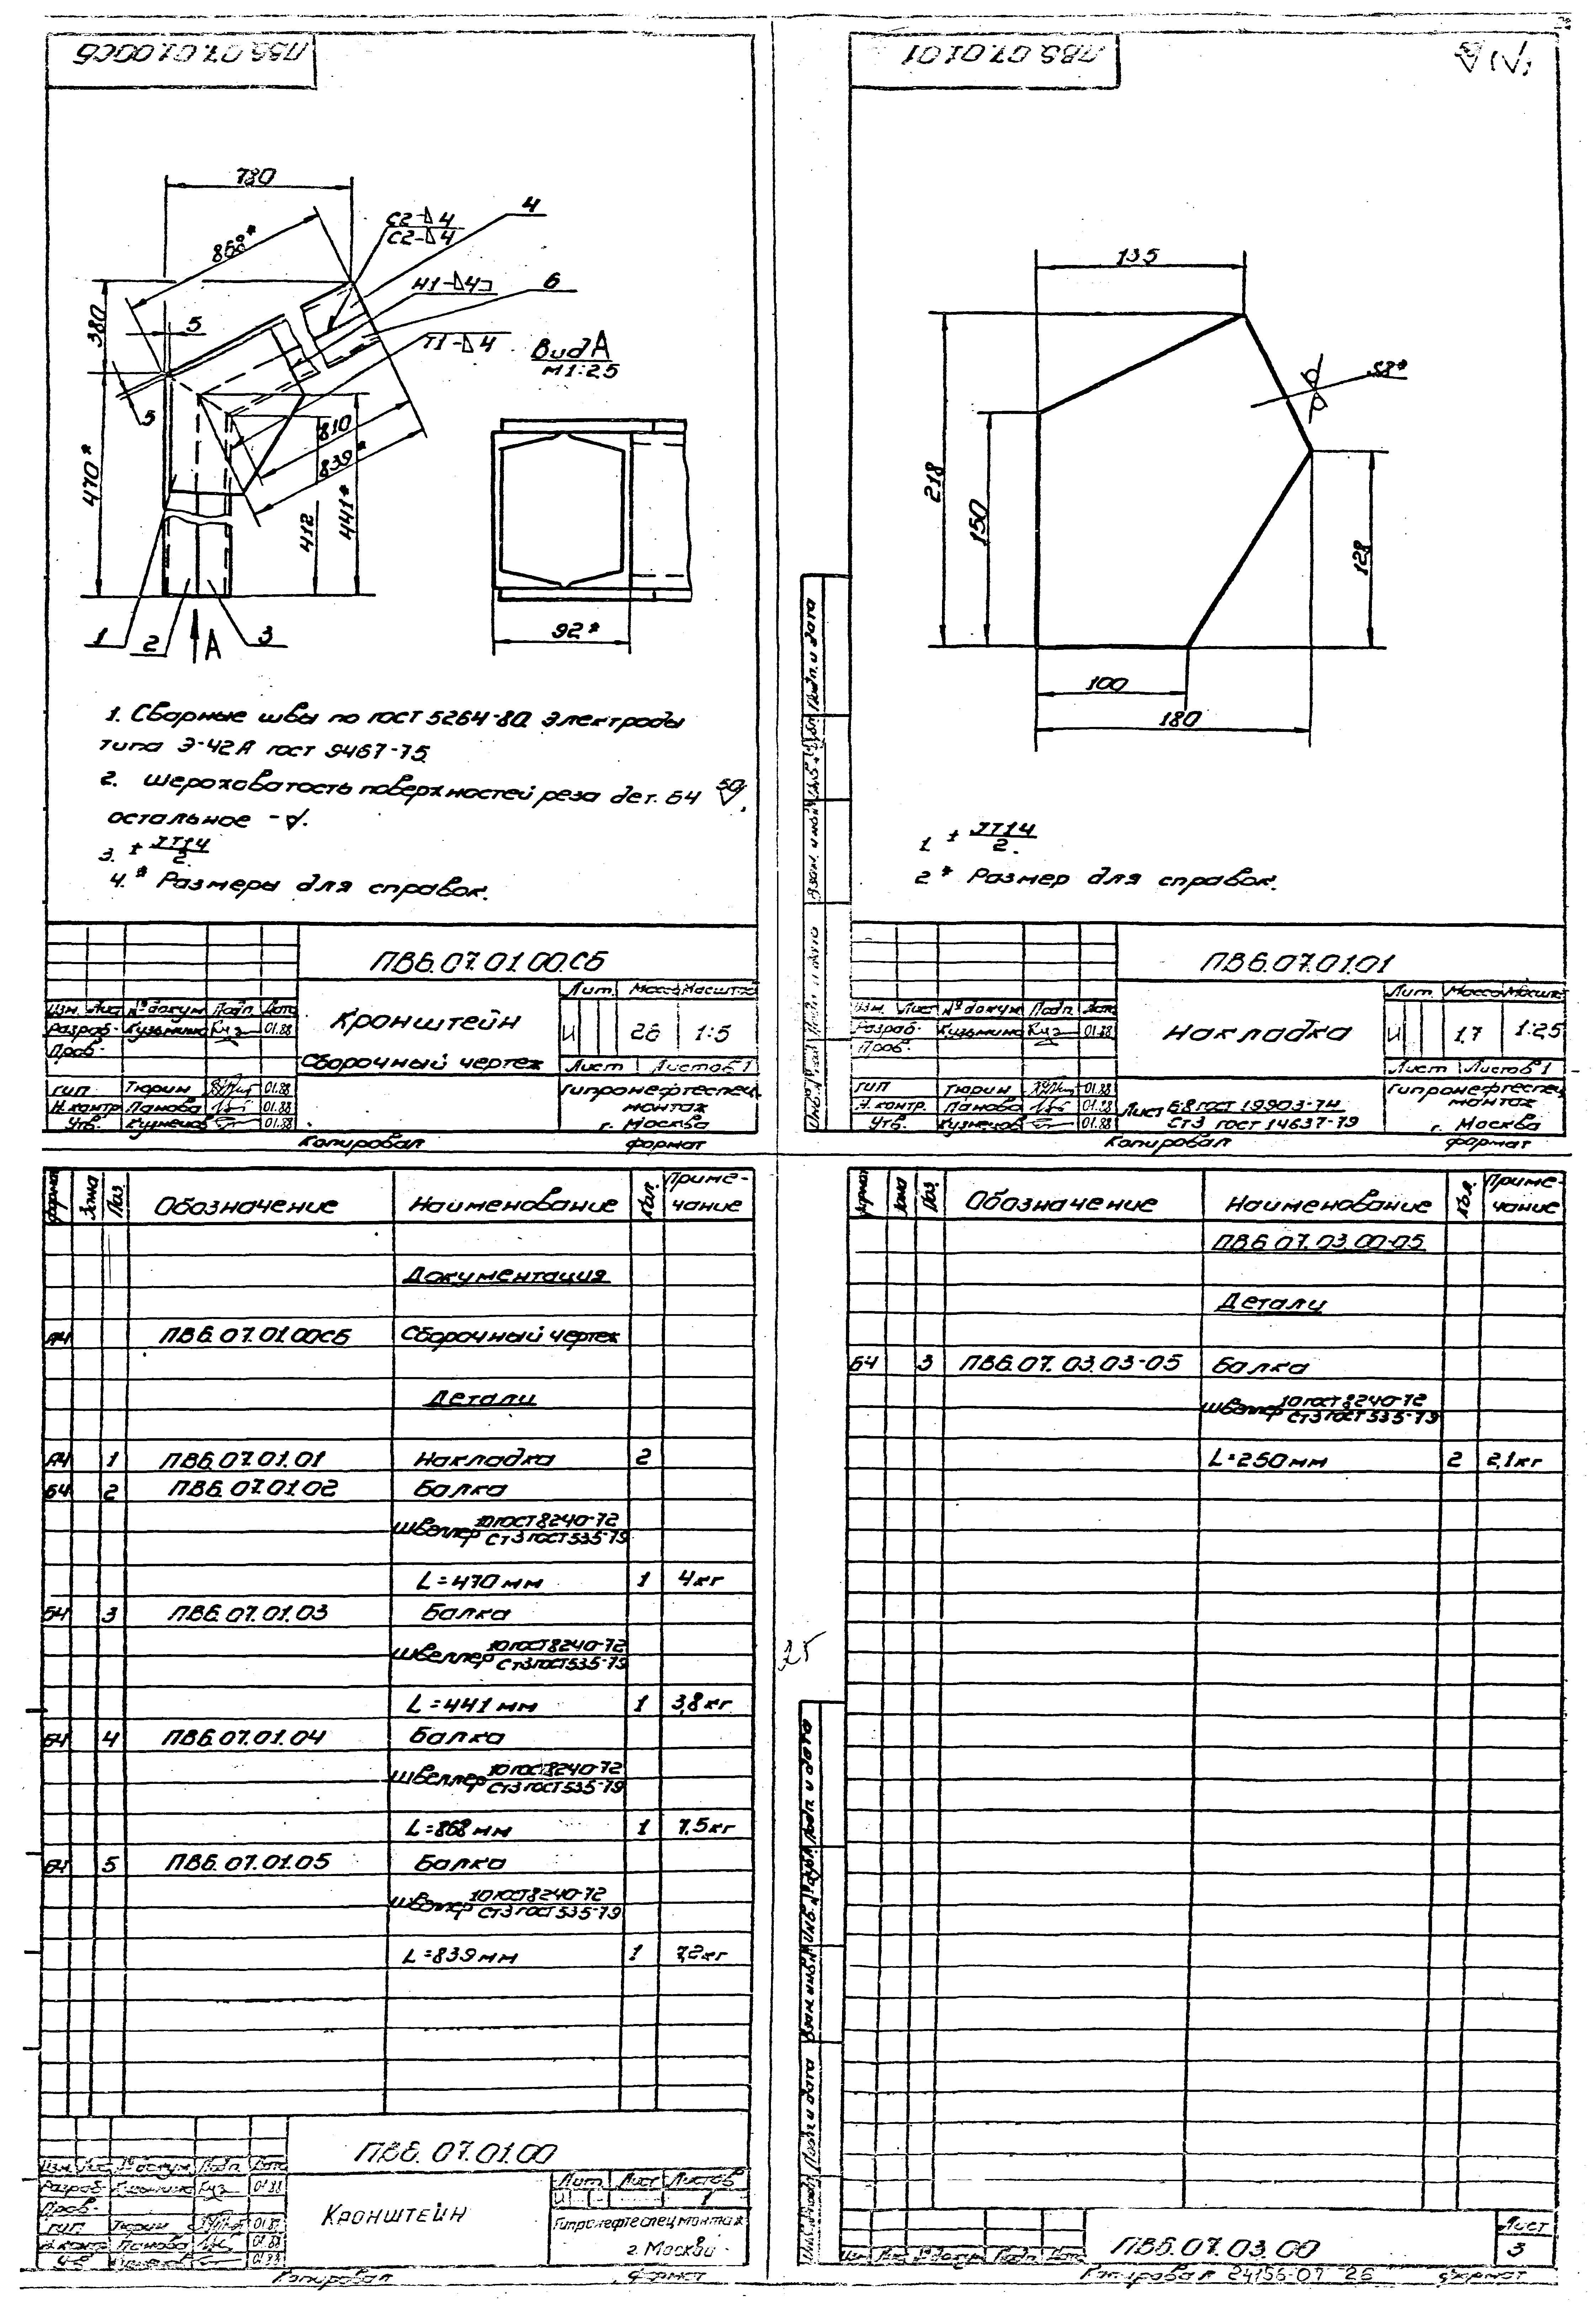 ПВ6.07.01.00СБ
780
868*
С2-◺4
С2-◺4
4
Н1-◺4
6
5
Т1-◺4
380
Вид А
М1:2,5
5
810
839*
470*
412
441*
1
2
А
3
92*
1. Сварные швы по ГОСТ 5264-80. Электроды
типа Э-42А ГОСТ 9467-75.
2. Шероховатость поверхностей реза дет. Б4 50,
остальное -
3. ± IT14/2.
4. * Размеры для справок.
ПВ6.07.01.00.СБ
Изм. Лист № докум Подп. Дата
Разраб. Кузьмина 01.88
Пров.
ГИП Тюрин 01.88
Н.контр. Панова 01.88
Утв. Кузнецов 01.88
Кронштейн
Сборочный чертеж
Лит. Масса Масштаб
И 26 1:5
Лист Листов 1
Гипронефтеспец-
монтаж
г. Москва
Копировал Формат
ПВ6.07.01.01
135
S8*
218
150
128
100
180
1. ± IT14/2.
2* Размер для справок.
Подп. и дата
ПВ6.07.01.01
Изм. Лист № докум Подп. Дата
Разраб. Кузьмина 01.88
Пров.
ГИП Тюрин 01.88
Н.контр. Панова 01.88
Утв. Кузнецов 01.88
Накладка
Лит. Масса Масшт
И 1,7 1:2,5
Лист Листов 1
Лист Б-8 ГОСТ 19903-74
Ст3 ГОСТ 14637-79
Гипронефтеспец-
монтаж
г. Москва
Копировал Формат
Формат Зона Поз. Обозначение Наименование Кол. Приме-
чание
Документация
А4 ПВ6.07.01.00СБ Сборочный чертеж
Детали
А4 1 ПВ6.07.01.01 Накладка 2
Б4 2 ПВ6.07.01.02 Балка
Швеллер 10 ГОСТ 8240-72
Ст3 ГОСТ 535-79
L=470 мм 1 4кг
Б4 3 ПВ6.07.01.03 Балка
Швеллер 10 ГОСТ 8240-72
Ст3 ГОСТ 535-79
L=441 мм 1 3,8кг
Б4 4 ПВ6.07.01.04 Балка
Швеллер 10 ГОСТ 8240-72
Ст3 ГОСТ 535-79
L=868 мм 1 7,5кг
Б4 5 ПВ6.07.01.05 Балка
Швеллер 10 ГОСТ 8240-72
Ст3 ГОСТ 535-79
L=839 мм 1 7,2кг
ПВ6.07.01.00
Изм. Лис № докум Подп. Дата
Разраб. 01.88
Пров.
ГИП Тюрин 01.88
Н.контр Панова 01.88
01.88
Кронштейн
Лит. Лист Листов
И 1
Гипронефтеспецмонтаж
г. Москва
Копировал Формат
25
Формат Зона Поз. Обозначение Наименование Кол. Приме-
чание
ПВ6.07.03.00-05
Детали
Б4 3 ПВ6.07.03.03-05 Балка
Швеллер 10 ГОСТ 8240-72
Ст3 ГОСТ 535-79
L=250 мм 2 2,1кг
Подп. и дата
ПВ6.07.03.00
Лист
3
Копировал 24156-07 26 Формат